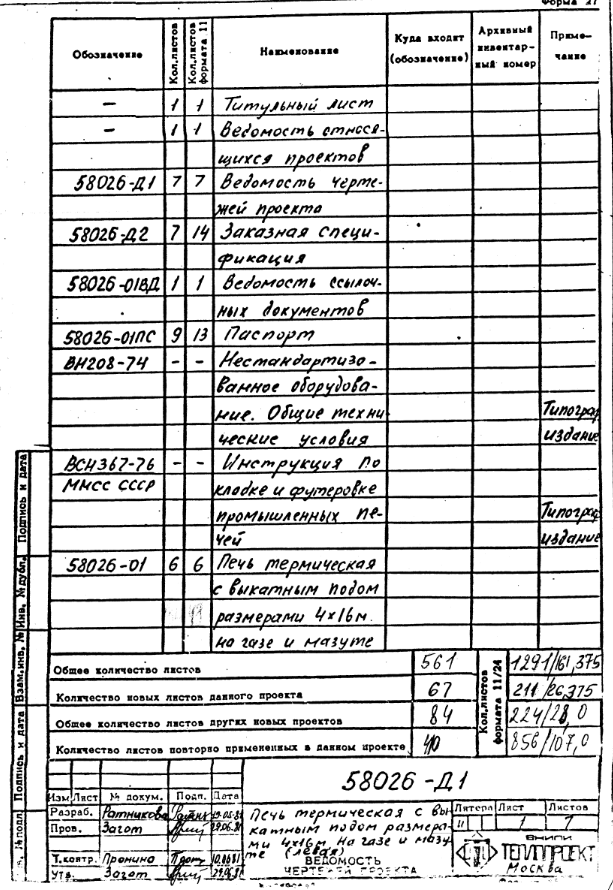 Форма 21
Обозначение
Кол.листов
Кол.листов формата 11
Наименование
Куда входит (обозначение)
Архивный инвентар-ный номер
Приме-чание
— 1 1 Титульный лист
— 1 1 Ведомость относя-
щихся проектов
58026-Д1 7 7 Ведомость черте-
жей проекта
58026-Д2 7 14 Заказная специ-
фикация
58026-01ВД 1 1 Ведомость ссылоч-
ных документов
58026-01ПС 9 13 Паспорт
ВН208-74 - - Нестандартизо-
ванное оборудова-
ние. Общие техни
ческие условия
Типограф
издание
ВСН367-76 - - Инструкция по
ММСС СССР кладке и футеровке
промышленных пе-
чей
Типограф
издание
58026-01 6 6 Печь термическая
с выкатным подом
размерами 4х16м
на газе и мазуте
Общее количество листов 561
Кол.листов формата 11/24
1291/161,375
Количество новых листов данного проекта 67 211/26,375
Общее количество листов других новых проектов 84 224/28,0
Количество листов повторно примененных в данном проекте 410 856/107,0
58026-Д1
Изм Лист № докум. Подп. Дата
Разраб. Ратникова
Пров. Загот
Т.контр. Пронина
Утв. Загот
Печь термическая с вы
катным подом размера-
ми 4х16м на газе и мазу
те (левая)
ВЕДОМОСТЬ
ЧЕРТЕЖЕЙ ПРОЕКТА
Литера Лист Листов
1 7
ВНИПИ
ТЕПЛОПРОЕКТ
Москва
Подпись и дата
Инв. № дубл.
Взам.инв. №
Подпись и дата
№ подл